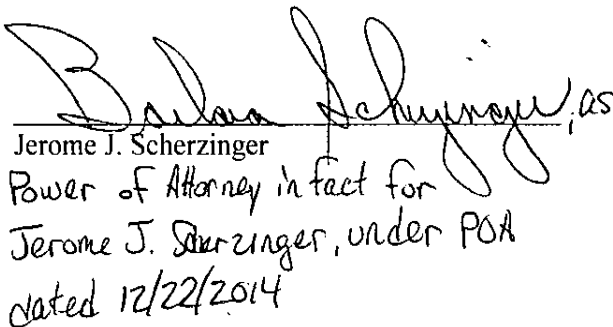 Barbara Scherzinger, as
Jerome J. Scherzinger
Power of Attorney in fact for
Jerome J. Scherzinger, under POA
dated 12/22/2014